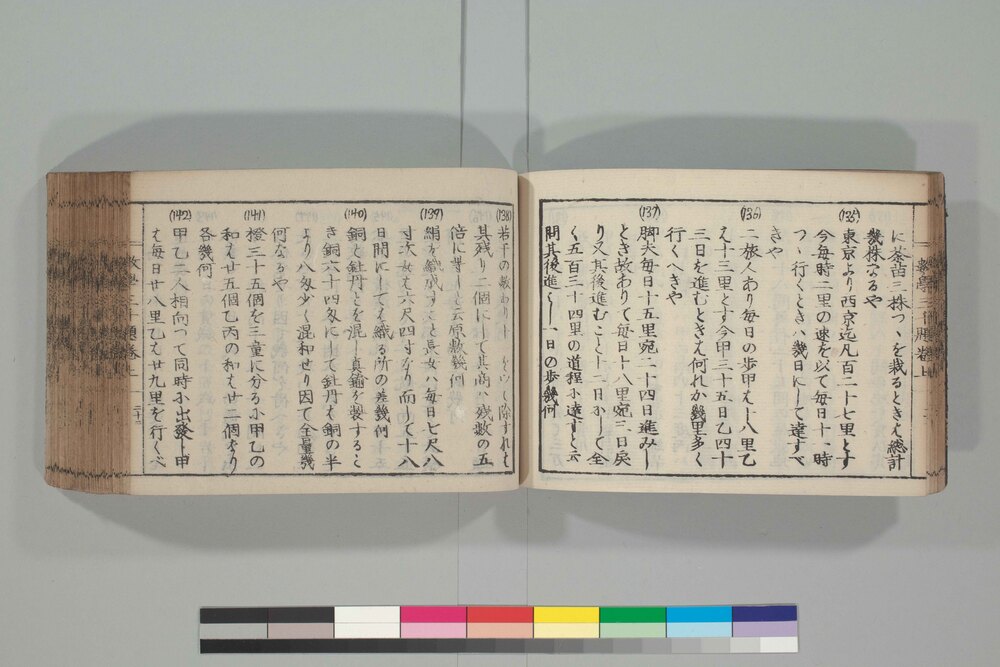 に茶苗三株つヽを栽るときハ総計
幾株なるや
(135)
東京より西京迄凡百二十七里とす
今毎時二里の速を以て毎日十一時
つヽ行くときハ幾日にして達すべ
きや
(136)
二旅人あり毎日の歩甲ハ十八里乙
ハ十三里とす今甲三十五日乙四十
三日を進むときハ何れか幾里多く
行くへきや
(137)
脚夫毎日十五里宛二十四日進みし
とき故ありて毎日十八里宛三日戻
り又其後進むこと十二日にして全
く五百三十四里の道程に達すと云
問其後進し一日の歩幾何
(138)
若干の数あり十
除すれハ
其残り二個にして其商ハ残数の五
倍に等しと云原数幾何
(139)
絹を織するに長女ハ毎日七尺八
寸次女ハ六尺四寸なり而して十八
日間にしてハ織る所の差幾何
(140)
銅と牡丹とを混し真鍮を製するこ
き銅六十四匁にして牡丹ハ銅の半
より八匁少く混和せり因て全量幾
何なるや
(141)
橙三十五個を三童に分るに甲乙の
和ハ廿五個乙丙の和ハ廿二個なり
各幾何
(142)
甲乙二人相向つて同時に出発し甲
ハ毎日廿八里乙ハ廿九里を行くべ